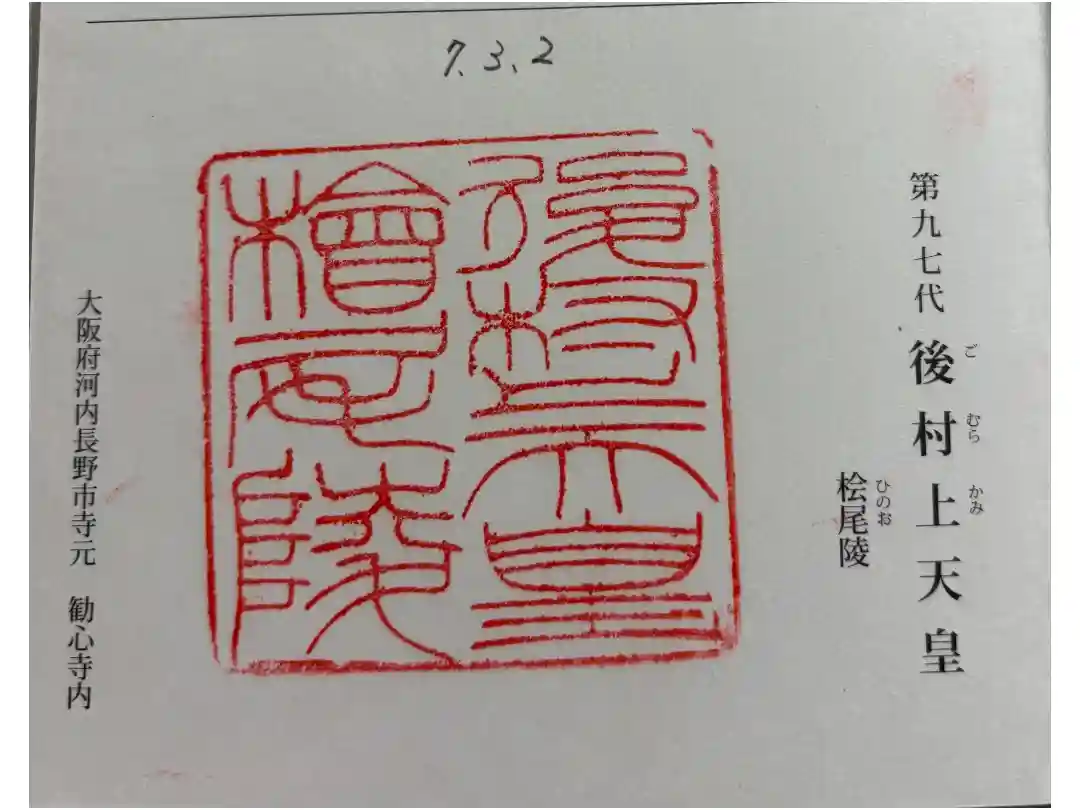 7.3.2
第九七代 後村上天皇
ご むら かみ
桧尾陵
ひのお
後村上天皇
檜尾陵
大阪府河内長野市寺元 勧心寺内